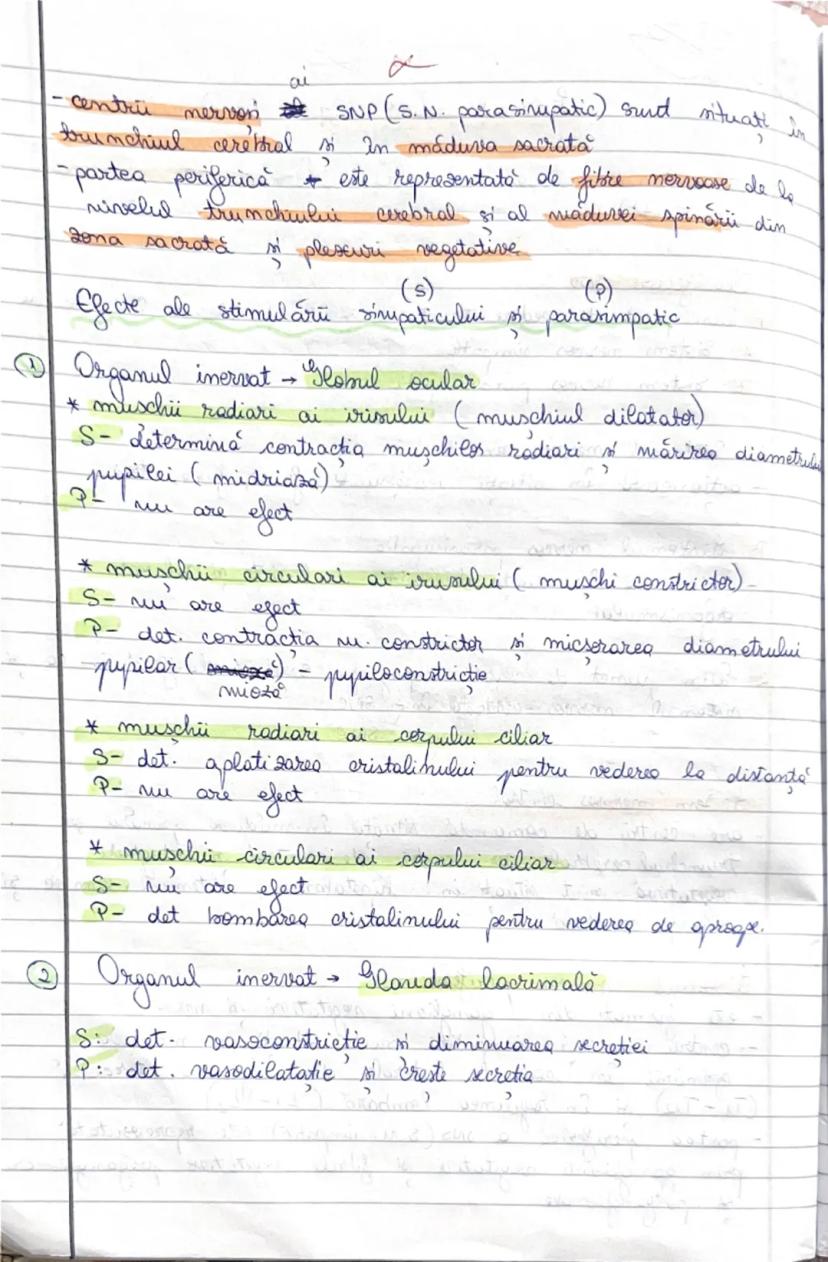 ai
- centrii nervoși SNP (S.N. parasimpatic) sunt situați în
trunchiul cerebral și în măduva sacrată
- partea periferică este reprezentată de fibre nervoase de la
nivelul trunchiului cerebral și al măduvei spinării din
zona sacrată și plexuri vegetative
(S) (P)
Efecte ale stimulării simpaticului și parasimpatic
1 Organul inervat → Globul ocular
* muschii radiari ai irisului (muschiul dilatator)
S- determină contracția mușchilor radiari și mărirea diametrului
pupilei (midriază)
P- nu are efect
* mușchii circulari ai irisului (muschi constrictor)
S- nu are efect
P- det. contracția m. constrictor și micșorarea diametrului
pupilar ( ) - pupiloconstricție
mioză
* mușchii radiari ai corpului ciliar
S- det. aplatizarea cristalinului pentru vederea la distanță
P- nu are efect
* mușchii circulari ai corpului ciliar
S- nu are efect
P- det bombarea cristalinului pentru vederea de aproape.
2 Organul inervat → Glanda lacrimală
S: det. vasoconstricție și diminuarea secreției
P: det. vasodilatație și crește secreția